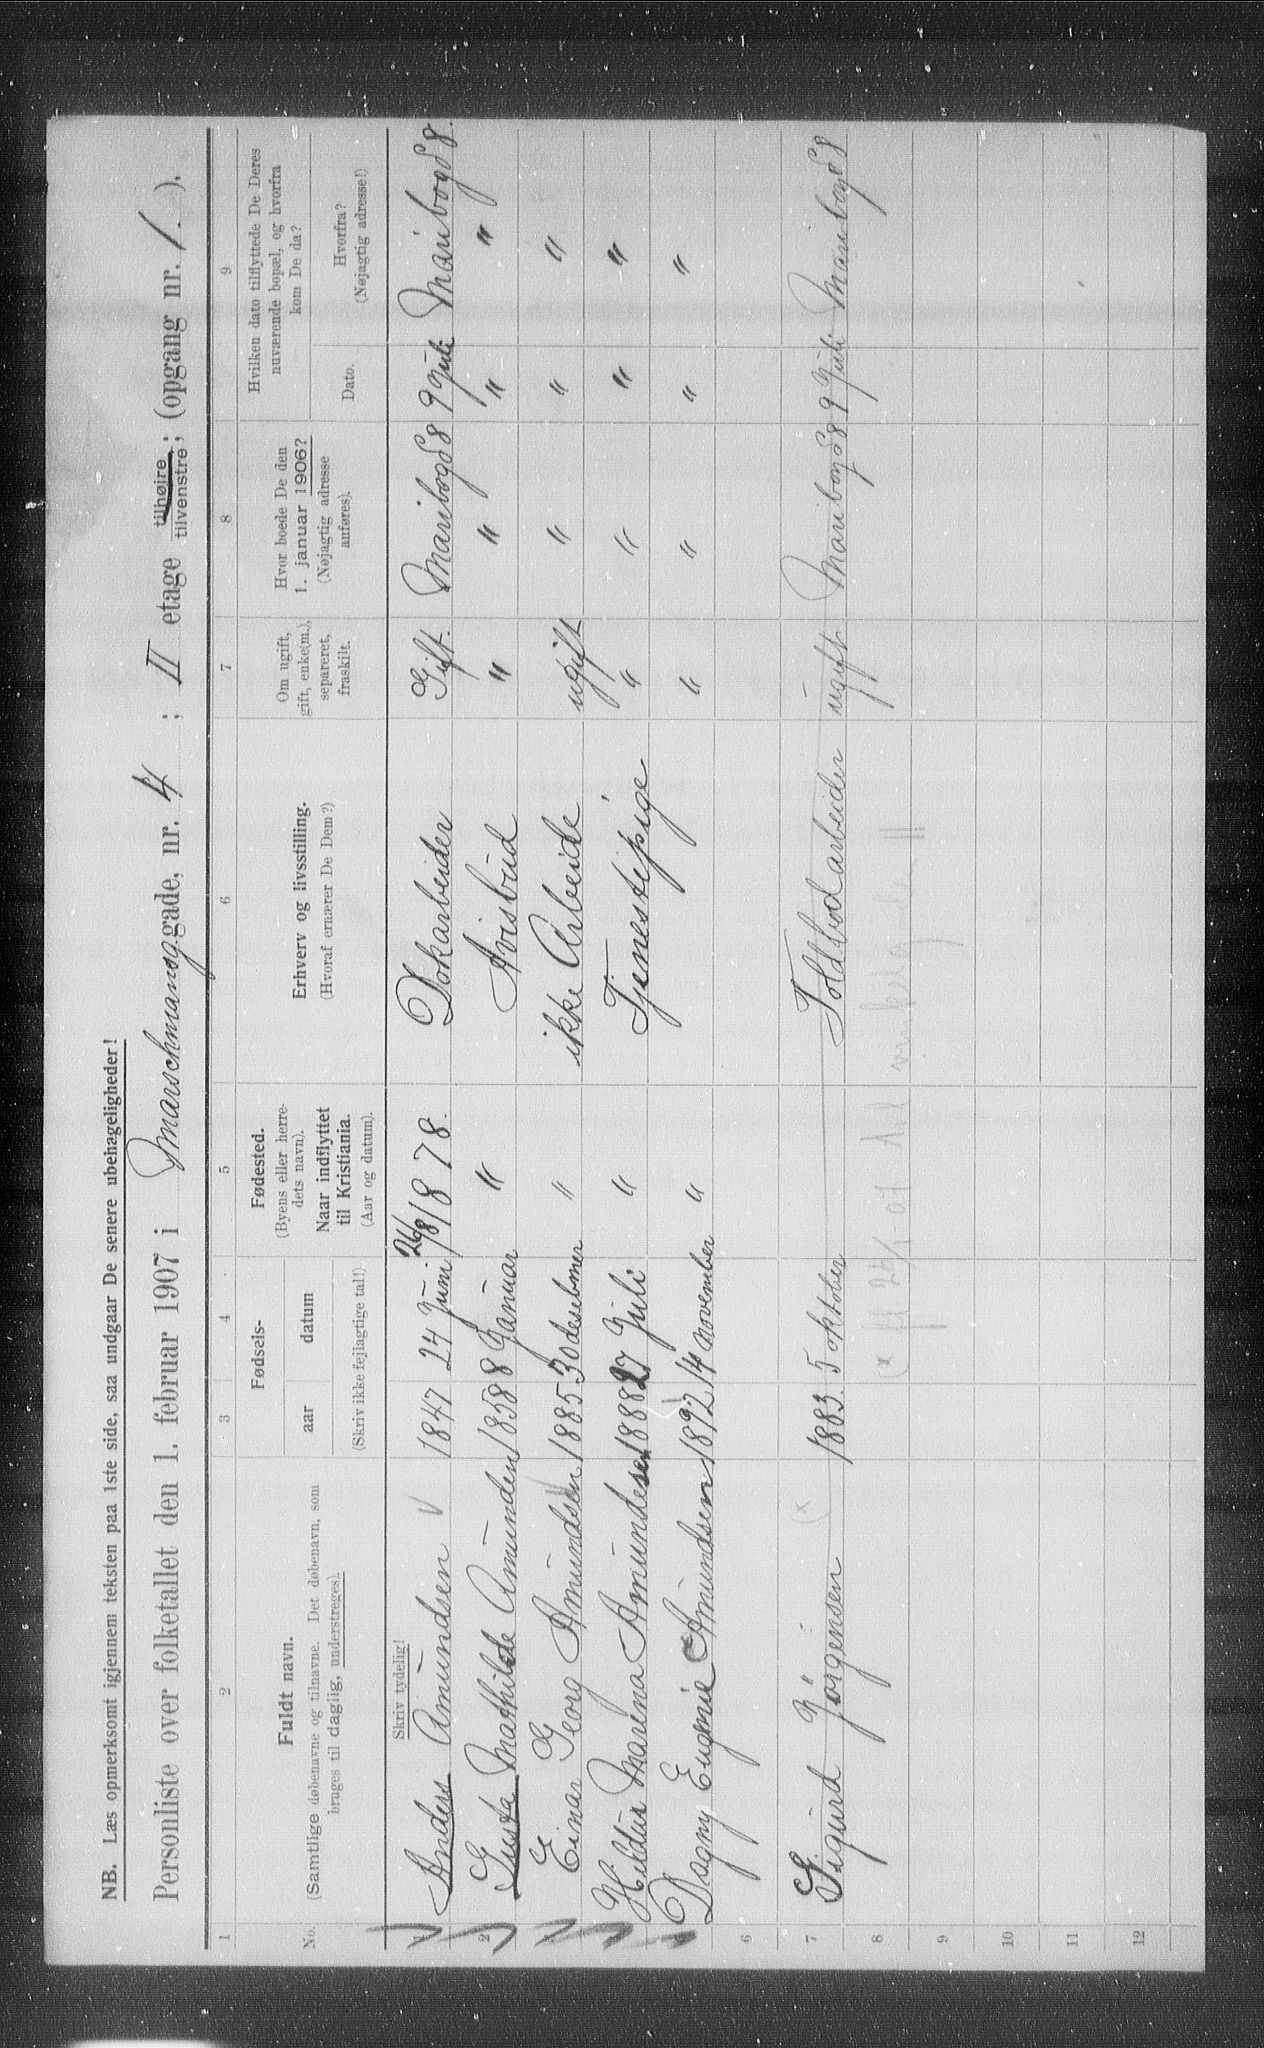 NB. Læs opmerksomt igjennem teksten paa 1ste side, saa undgaar De senere ubehageligheder!
Personliste over folketallet den 1. februar 1907 i Marschmansggade, nr. 4 ; II etage tilhøire tilvenstre; (opgang nr. 1. ).
1 2 3 4 5 6 7 8 9
No.
Fuldt navn.
(Samtlige døbenavne og tilnavne. Det døbenavn, som
bruges til daglig, understreges).
Fødsels-
aar datum
(Skriv ikke fejlagtige tal!)
Fødested.
(Byens eller herre-
dets navn).
Naar indflyttet
til Kristiania.
(Aar og datum).
Erhverv og livsstilling.
(Hvoraf ernærer De Dem?)
Om ugift,
gift, enke(m.),
separeret,
fraskilt.
Hvor boede De den
1. januar 1906?
(Nøjagtig adresse
anføres).
Hvilken dato tilflyttede De Deres
nuværende bopæl, og hvorfra
kom De da?
Dato.
Hvorfra?
(Nøjagtig adresse!)
Skriv tydelig!
1 Anders Amundsen 1847 24 Juni 26/8 1878. Dokarbeider Gift. Maribogd 8 9 Juli Maribogd 8.
2 Gusta Mathilde Amunden 1858 8 Januar " Avisbud " " " "
Einar Georg Amundsen 1885 30 desebmer " ikke Arbeide ugift " " "
Hildur Marena Amundesen 1888 27 Juli " Tjenestepige " " " "
Dagny Eugenie Amundsen 1892 14 November " " " " "
6
7 Sigurd Jørgensen (x 1883. 5 oktober Toldbodarbeider ugift Maribogd 8 9 Juli Maribogd 8
8 (x fl 26/1-07
9
10
11
12